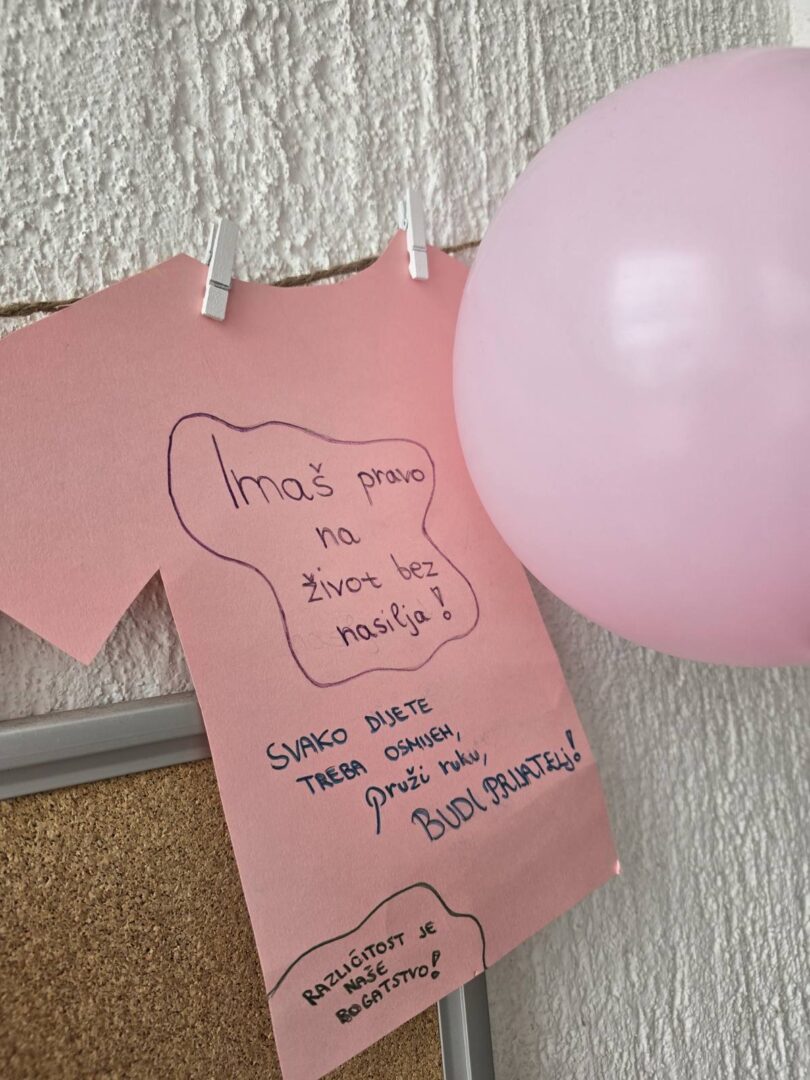 Imaš pravo
na
život bez
nasilja!
SVAKO DIJETE
TREBA OSMIJEH,
pruži ruku,
BUDI PRIJATELJ!
RAZLIČITOST JE
NAŠE
BOGATSTVO!